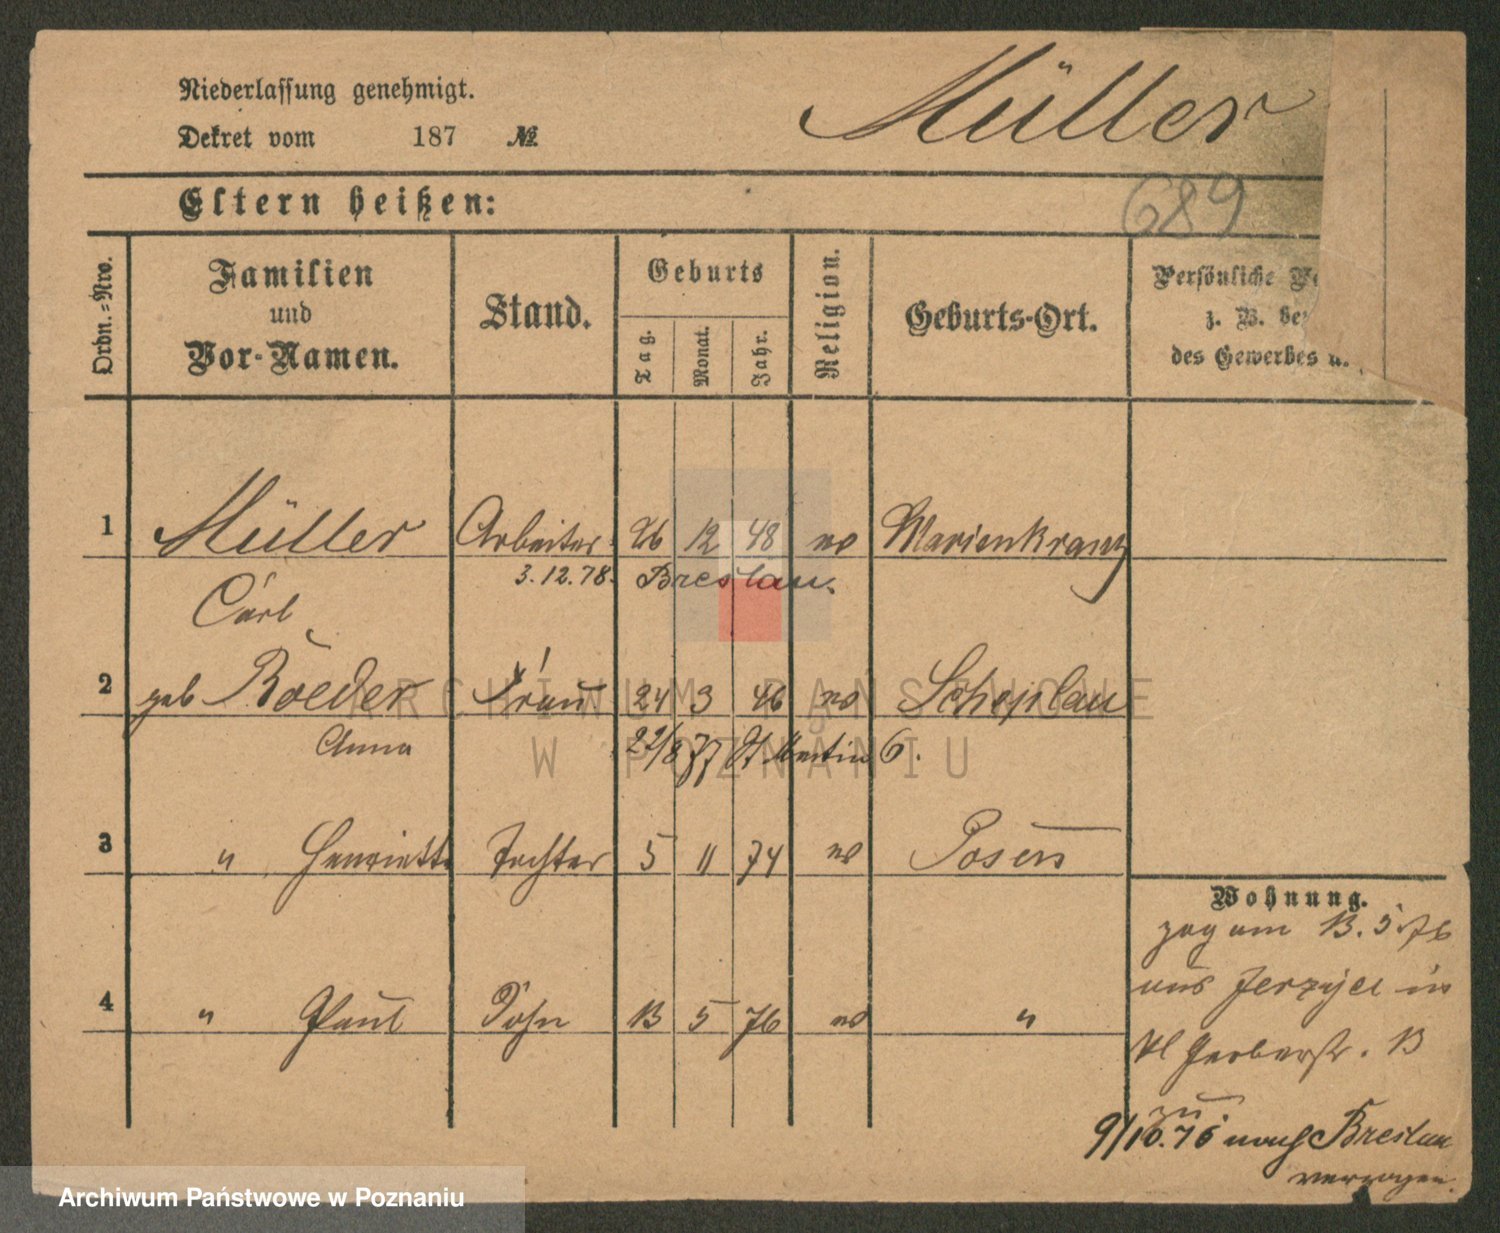 Niederlassung genehmigt.
Müller
Dekret vom 187 №
689
Eltern heißen:
Ordn.=Nro.
Familien
und
Vor-Namen.
Stand.
Geburts
Tag. Monat. Jahr.
Religion.
Geburts-Ort.
Persönliche
z. B.
des Gewerbes u.
1 Müller Arbeiter 26 12 48 ev Marienkranz
3.12.78. Breslau.
Carl
2 geb Roeder Frau 24 3 46 ev
Anna 22/8 77 St Martin 6.
3 " Henriette Tochter 5 11 74 ev Posen
4 " Paul Sohn 13 5 76 ev "
Wohnung.
zog am 13. 5 76
aus Jerzyce in
Kl Gerberstr. 13
zu
9/10.76 nach Breslau
verzogen.
ARCHIWUM PAŃSTWOWE
W POZNANIU
Archiwum Państwowe w Poznaniu